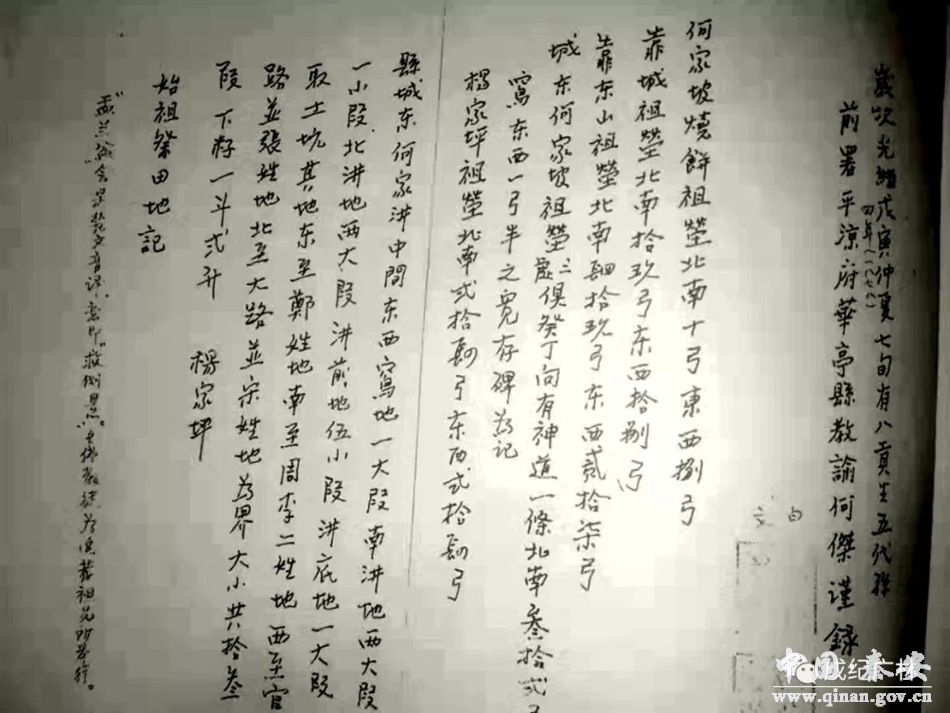 歲次光緒戊寅仲夏七旬有八貢生五代孫
四年(一八七八)
前署平涼府華亭縣教諭何傑謹録
白文
何家坡燒餅祖塋北南十弓東西捌弓
靠城祖塋北南拾玖弓东西拾捌弓
靠东山祖塋北南肆拾玖弓东西貳拾柒弓
城东何家坡祖塋三處俱癸丁向有神道一條北南叁拾弍弓
寫东西一弓半之寬存碑為記
楊家坪祖塋北南弍拾肆弓东西弍拾肆弓
縣城东何家湃中間东西寫地一大段南湃地两大段
一小段北湃地两大段湃前地伍小段湃底地一大段
取土坑其地东至鄭姓地南至周李二姓地西至官
路並張姓地北至大路並宋姓地為界大小共拾叁
段下籽一斗弍升 楊家坪
始祖祭田地記
"盂兰盆会是梵文音译,意即"救倒悬"。
中国秦安
成纪广校
www.qinan.gov.cn